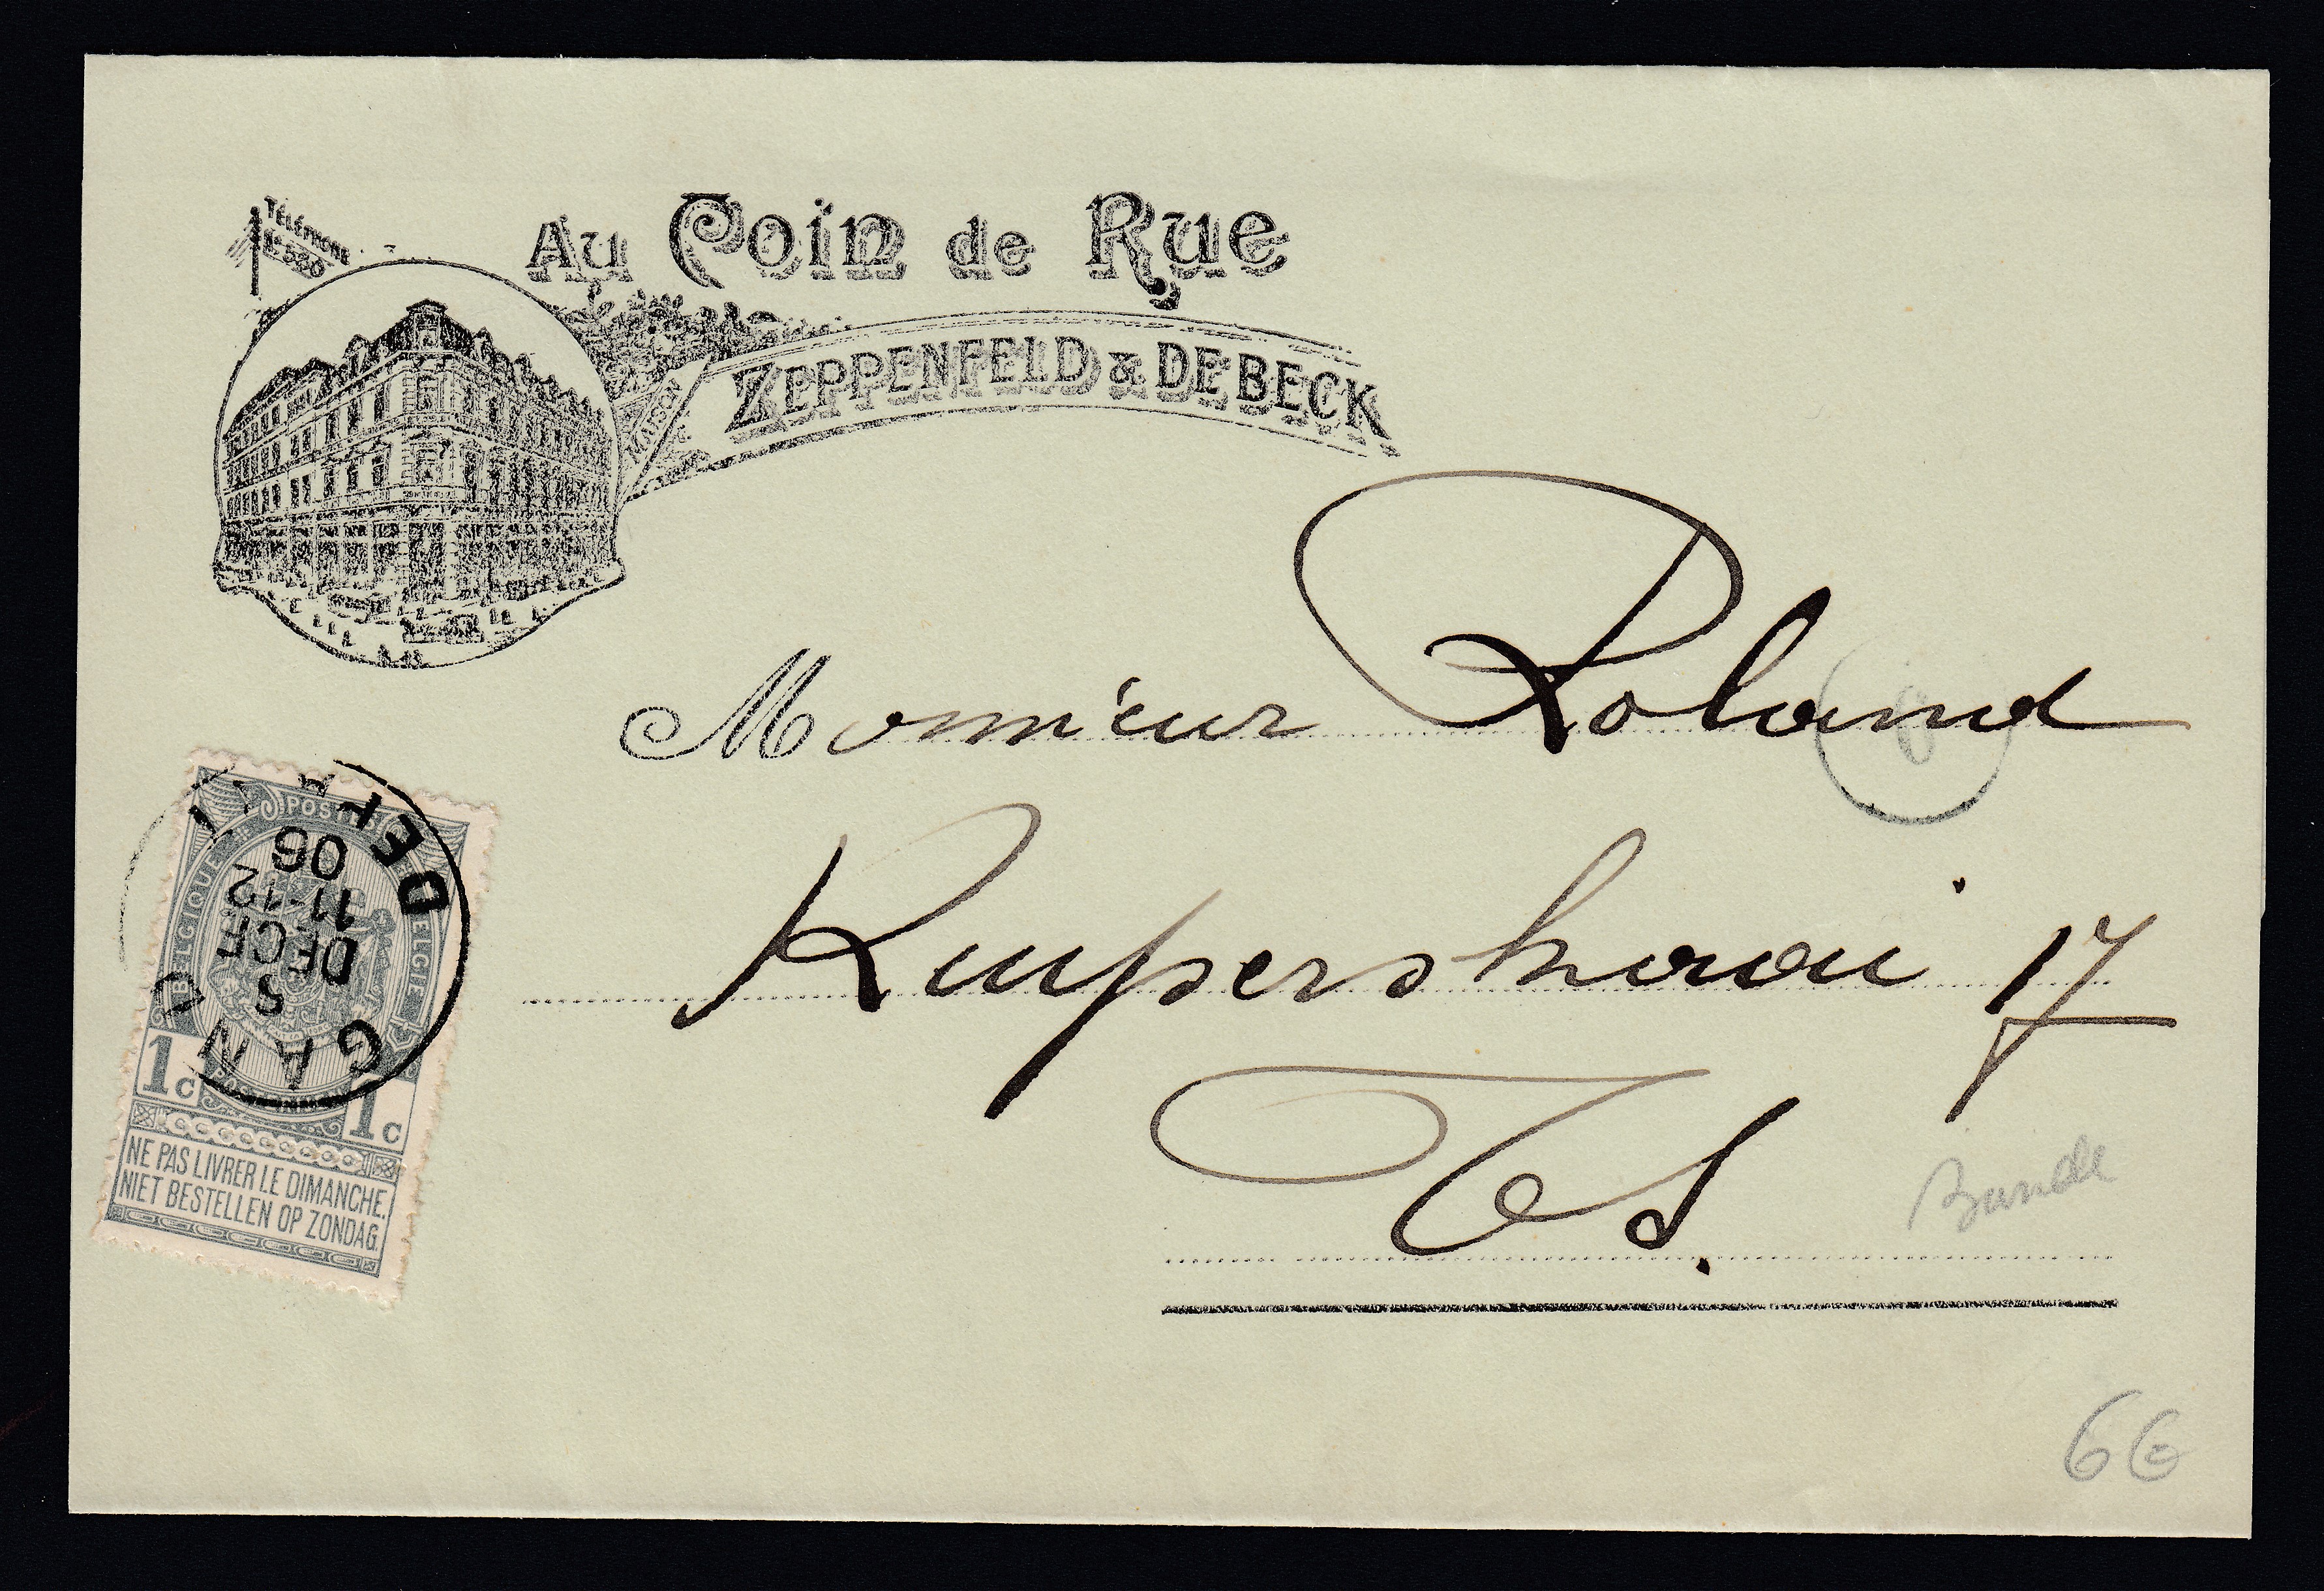 TÉLÉPHONE
N° 580
Au Coin de Rue
MAISON
ZEPPENFELD & DE BECK
Monsieur Roland
Kuypershaai 17
GAND
5
DECE
11-12
06
DEPART
POSTES
BELGIQUE
BELGIE
1c 1c
NE PAS LIVRER LE DIMANCHE.
NIET BESTELLEN OP ZONDAG.
Bande
6€